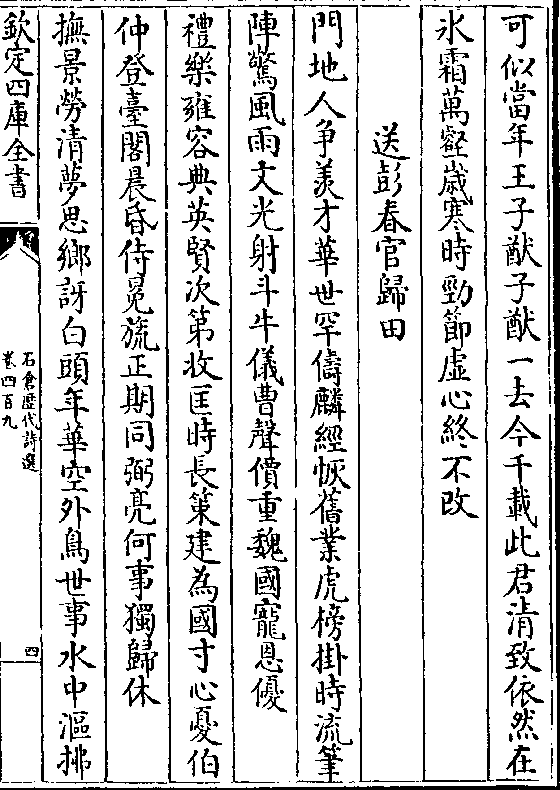 可似當年王子猷子猷一去今千載此君清致依然在
氷霜萬壑歳寒時勁節虛心終不改
送彭春官歸田
門地人争羡才華世罕儔麟經恢舊業虎榜掛時流筆
陣驚風雨文光射斗牛儀曹聲價重魏國寵恩優
禮樂雍容典英賢次第收匡時長策建為國寸心憂伯
仲登臺閣晨昏侍冕旒正期同弼亮何事獨歸休
撫景勞清夢思鄉訝白頭年華空外鳥世事水中漚拂
欽定四庫全書
石倉歴代詩選
卷四百九
四